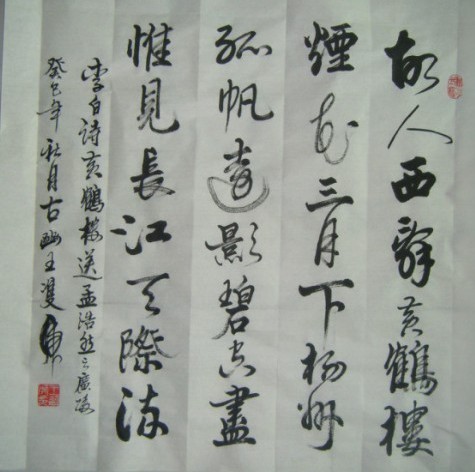 故人西辞黄鹤樓
煙花三月下楊州
孤帆遠影碧空盡
惟見長江天際流
李白诗黄鹤樓送孟浩然之廣陵
癸巳年秋月古幽王双